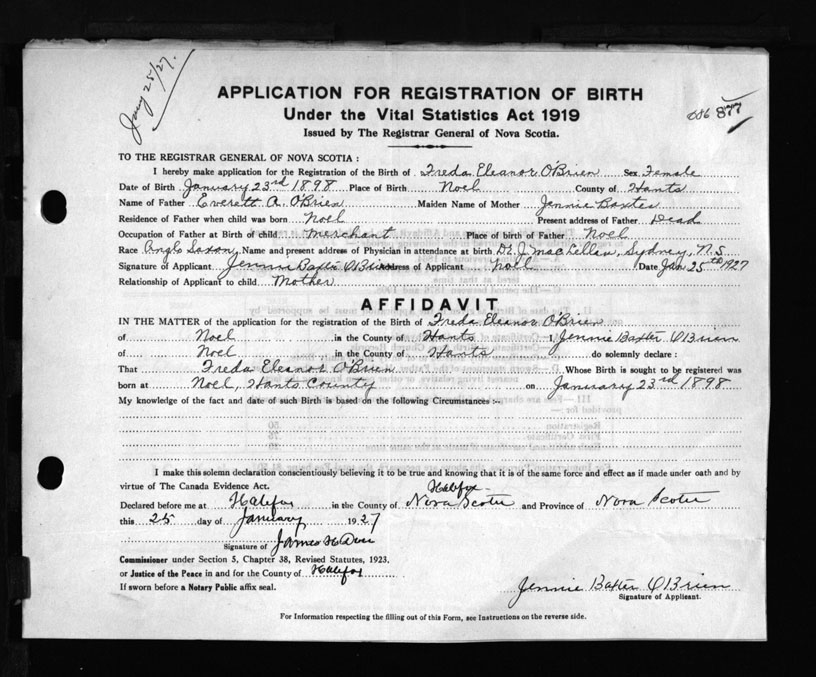 Jany 25/27.
APPLICATION FOR REGISTRATION OF BIRTH
Under the Vital Statistics Act 1919
686 877
Issued by The Registrar General of Nova Scotia.
TO THE REGISTRAR GENERAL OF NOVA SCOTIA:
I hereby make application for the Registration of the Birth of Freda Eleanor O'Brien Sex Female
Date of Birth January 23rd 1898 Place of Birth Noel County of Hants
Name of Father Everett A. O'Brien Maiden Name of Mother Jennie Baxter
Residence of Father when child was born Noel Present address of Father Dead
Occupation of Father at Birth of child merchant Place of birth of Father Noel
Race Anglo Saxon Name and present address of Physician in attendance at birth Dr. J. MacLellan, Sydney, N.S
Signature of Applicant Jennie Baxter O'Brien Address of Applicant Noel Date Jan 25th 1927
Relationship of Applicant to child Mother
AFFIDAVIT
IN THE MATTER of the application for the registration of the Birth of Freda Eleanor O'Brien
of Noel in the County of Hants I, Jennie Baxter O'Brien
of Noel in the County of Hants do solemnly declare:
That Freda Eleanor O'Brien Whose Birth is sought to be registered was
born at Noel, Hants County on January 23rd 1898
My knowledge of the fact and date of such Birth is based on the following Circumstances:-
I make this solemn declaration conscientiously believing it to be true and knowing that it is of the same force and effect as if made under oath and by
virtue of The Canada Evidence Act.
Halifax
Declared before me at Halifax in the County of Nova Scotia and Province of Nova Scotia
this 25 day of January 1927
Signature of James H
Commissioner under Section 5, Chapter 38, Revised Statutes, 1923,
or Justice of the Peace in and for the County of Halifax
If sworn before a Notary Public affix seal.
Jennie Baxter O'Brien
Signature of Applicant.
For Information respecting the filling out of this Form, see Instructions on the reverse side.